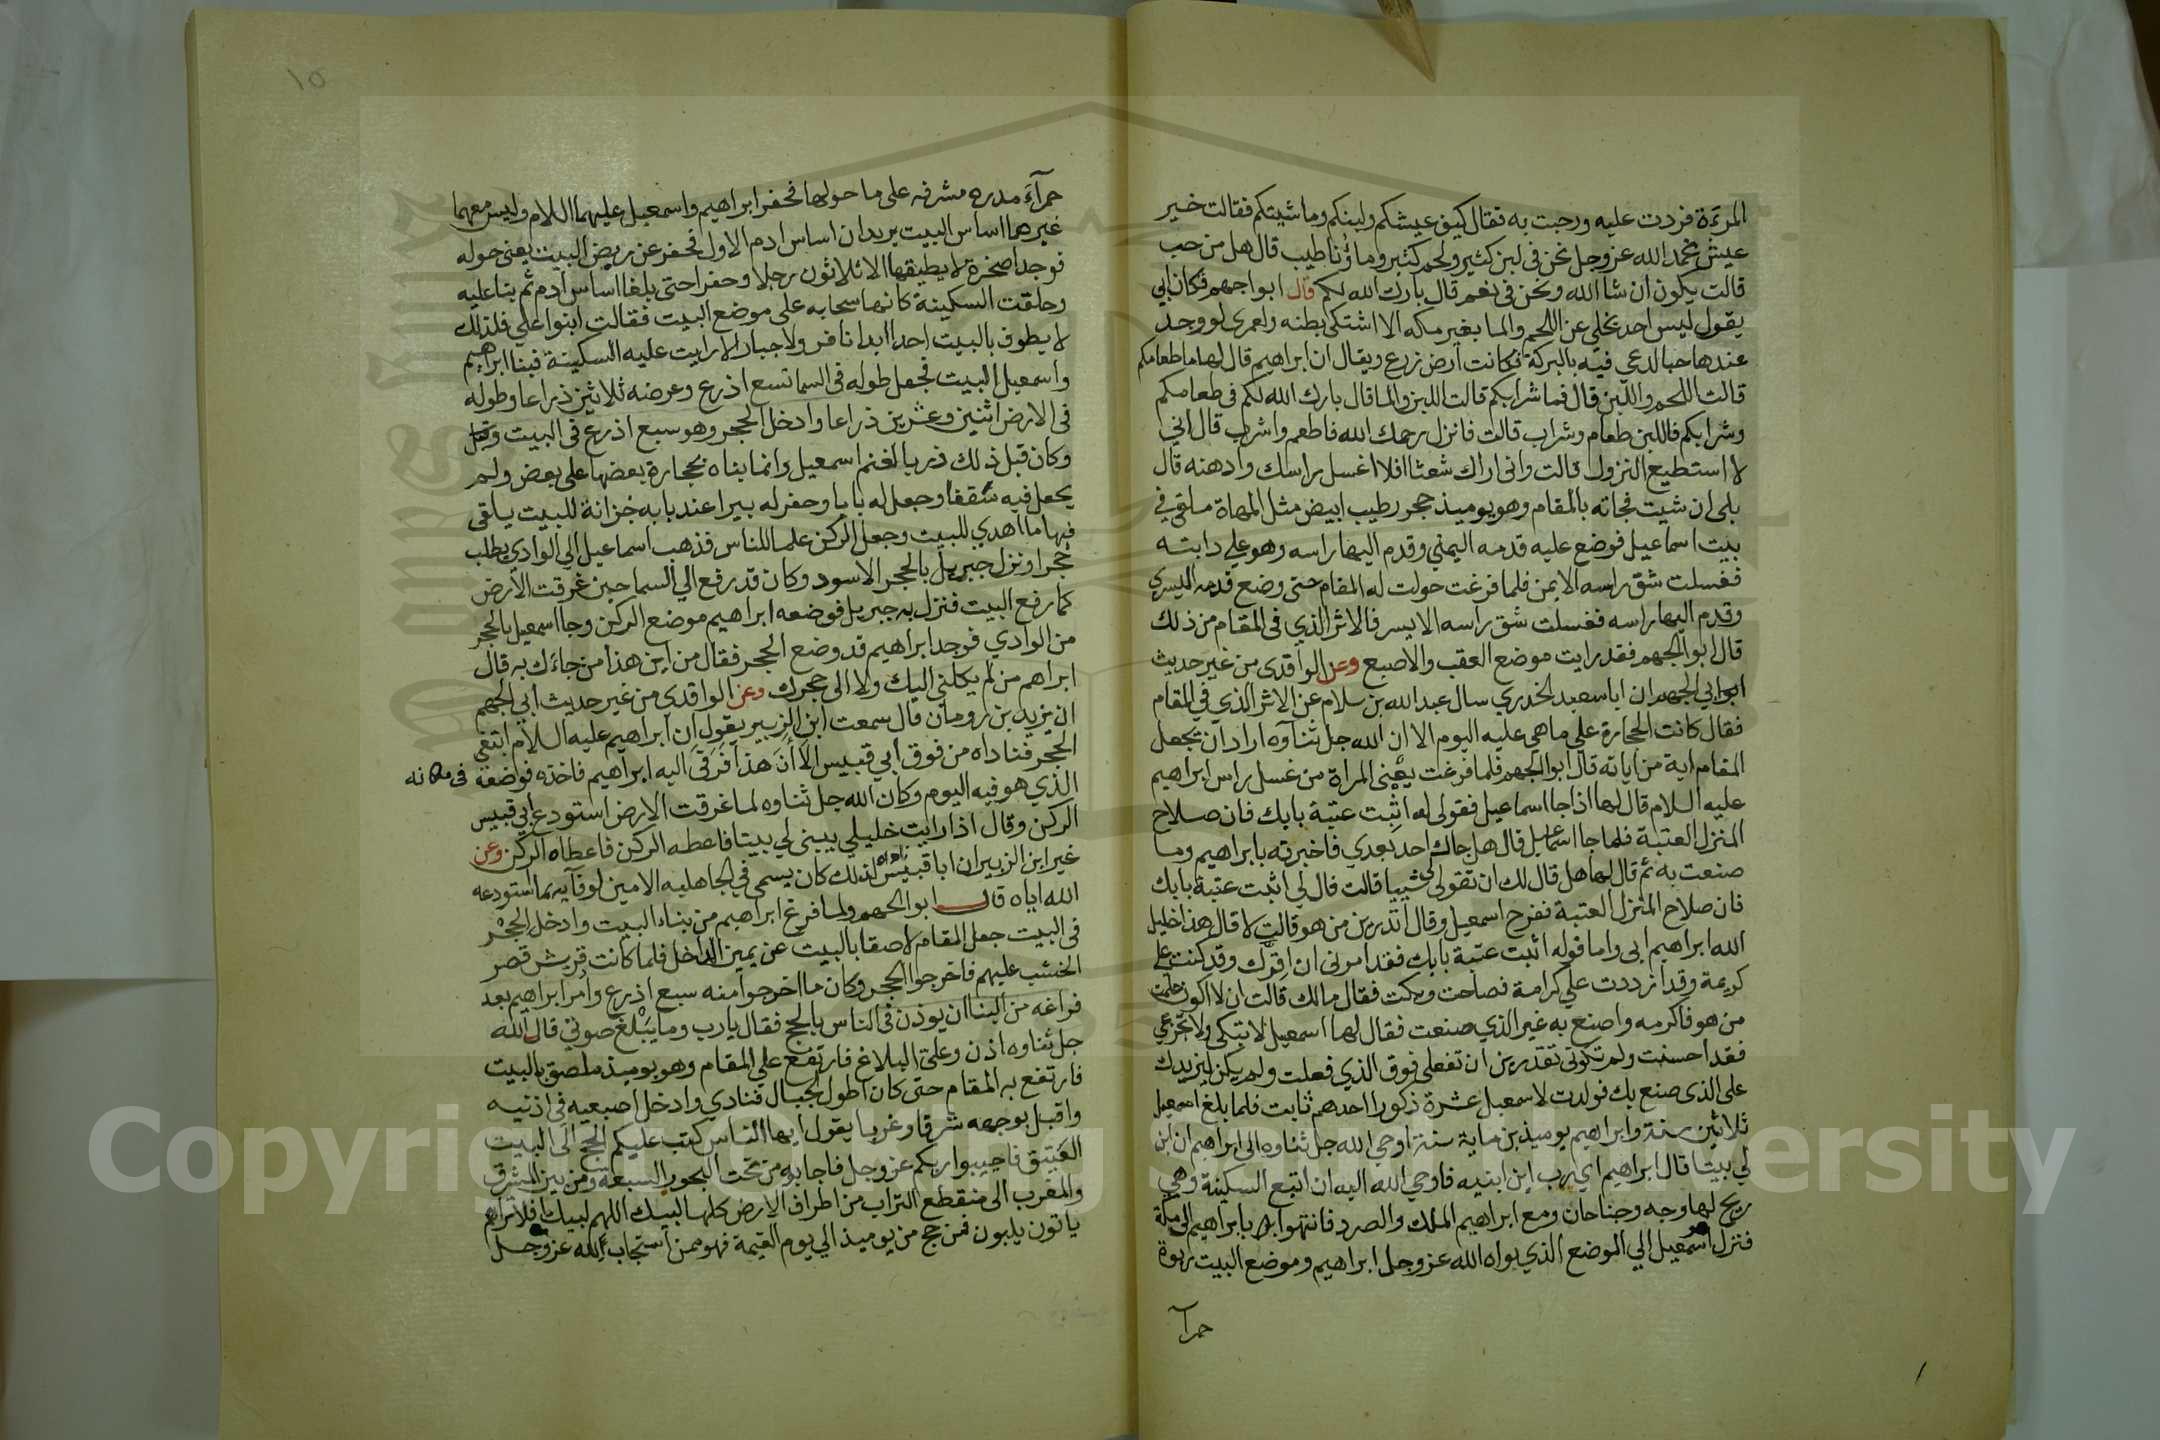 المرءة فردت عليه ورحبت به فقال كيف عيشكم ولبنكم وما شيتكم فقالت خير
عيش نحمد الله عز وجل نحن في لبن كثير ولحم كثير وماؤنا طيب قال هل من حب
قالت يكون ان شا الله ونحن في نعم قال بارك الله لكم قال ابوا جهم فكان ابي
يقول ليس احد يخلي عن اللحم والما بغير مكه الا اشتكى بطنه ولعمرى لو وجد
عندها حبا لدعي فيه بالبركة فكانت ارض زرع ويقال ان ابراهيم قال لها ما طعامكم
قالت اللحم واللبن قال فما شرابكم قالت اللبن والما قال بارك الله لكم في طعامكم
وشرابكم فاللبن طعام وشراب قالت فانزل رحمك الله فاطعم واشرب قال اني
لا استطيع النزول قالت واني اراك شعثا افلا اغسل راسك وادهنه قال
بلى ان شيت فجاته بالمقام وهو يوميذ حجر رطيب ابيض مثل المهاة ملقي في
بيت اسماعيل فوضع عليه قدمه اليمني وقدم اليها راسه وهو علي دابته
فغسلت شق راسه الايمن فلما فرغت حولت له المقام حتى وضع قدمه اليسري
وقدم اليها راسه فغسلت شق راسه الايسر فالاثر الذي في المقام من ذلك
قال ابو الجهم فقد رايت موضع العقب والاصبع وعن الواقدى من غير حديث
ابو ابي الجهم ان ابا سعيد الخدري سال عبد الله بن سلام عن الاثر الذي في المقام
فقال كانت الحجارة علي ما هي عليه اليوم الا ان الله جل ثناوه اراد ان يجعل
المقام اية من اياته قال ابو الجهم فلما فرغت يعني المراة من غسل راس ابراهيم
عليه السلام قال لها اذا جا اسماعيل فقولى له اثبت عتبة بابك فان صلاح
المنزل العتبة فلما جا اسماعيل قال هل جاك احد بعدي فاخبرته بابراهيم وما
صنعت به ثم قال لها هل قال لك ان تقولى لي شييا قالت قال لي اثبت عتبة بابك
فان صلاح المنزل العتبة ففرح اسمعيل وقال اتدرين من هو قالت لا قال هذا خليل
الله ابراهيم ابي واما قوله اثبت عتبة بابك فقد امرني ان اقرك وقد كنت علي
كريمة وقد ازددت علي كرامة فصاحت وبكت فقال مالك قالت ان لا اكون علمت
من هو فاكرمه واصنع به غير الذي صنعت فقال لها اسمعيل لا تبكى ولا تجزعي
فقد احسنت ولم تكوني تقدرين ان تفعلى فوق الذي فعلت ولم يكن ليزيدك
على الذى صنع بك فولدت لاسمعيل عشرة ذكورا احدهم ثابت فلما بلغ اسمعيل
ثلاثين سنة وابراهيم يوميذ بن ماية سنة اوحي الله جل ثناوه الى ابراهيم ان ابن
لي بيتا قال ابراهيم اي رب اين ابنيه فاوحي الله اليه ان اتبع السكينة وهي
ريح لها وجه وجناحان ومع ابراهيم الملك والصرد فانتهوا بابراهيم الى مكة
فنزل اسمعيل الي الموضع الذي بواه الله عز وجل ابراهيم وموضع البيت ربوة
حمرآ
١٥
حمرآء مدره مشرفه على ما حولها فحفر ابراهيم واسمعيل عليهما السلام وليس معهما
غيرهما اساس البيت يريدان اساس ادم الاول فحفر عن ربض البيت يعني حوله
فوجدا صخرة لا يطيقها الا ثلاثون رجلا وحفرا حتى بلغا اساس ادم ثم بنا عليه
وحلقت السكينة كانها سحابه على موضع البيت فقالت ابنوا علي فلذلك
لا يطوف بالبيت احدا ابدا نافر ولا جبار الا رايت عليه السكينة فبنا ابراهيم
واسمعيل البيت فجعل طوله في السما تسع اذرع وعرضه ثلاثين ذراعا وطوله
في الارض اثنين وعشرين ذراعا وادخل الحجر وهو سبع اذرع في البيت وقيل
وكان قبل ذلك زربا لغنم اسمعيل وانما بناه بحجارة بعضها على بعض ولم
يجعل فيه سقفا وجعل له بابا وحفر له بيرا عند بابه خزانة للبيت يلقى
فيها ما اهدي للبيت وجعل الركن علما للناس فذهب اسماعيل الي الوادي يطلب
حجرا ونزل جبريل بالحجر الاسود وكان قد رفع الي السما حين غرقت الارض
كما رفع البيت فنزل به جبريل فوضعه ابراهيم موضع الركن وجا اسمعيل بالحجر
من الوادي فوجد ابراهيم قد وضع الحجر فقال من اين هذا من جاءك به قال
ابراهم من لم يكلني اليك ولا الى حجرك وعن الواقدي من غير حديث ابي الجهم
ان يزيد بن رومان قال سمعت ابن الزبير يقول ان ابراهيم عليه السلام ابتغي
الحجر فناداه من فوق ابي قبيس الا انا هذا فرقى اليه ابراهيم فاخذه فواضعه في مكانه
الذي هو فيه اليوم وكان الله جل ثناوه لما غرقت الارض استودع ابي قبيس
الركن وقال اذا رايت خليلي يبنى لي بيتا فاعطه الركن فاعطاه الركن وعن
غير ابن الزبير ان ابا قبيس لذلك كان يسمى في الجاهليه الامين لوفآيه بما استودعه
الله اياه قال ابو الجهم ولما فرغ ابراهيم من بناء البيت وادخل الحجر
في البيت جعل المقام لاصقا بالبيت عن يمين الداخل فلما كانت قريش قصر
الخشب عليهم فاخرجوا الحجر وكان ما اخرجوا منه سبع اذرع وامر ابراهيم بعد
فراغه من البنا ان يوذن في الناس بالحج فقال يا رب وما يبلغ صوتي قال الله
جل ثناوه اذن وعلي البلاغ فارتفع علي المقام وهو يوميذ ملصق بالبيت
فارتفع به المقام حتى كان اطول الجبال فنادي وادخل اصبعيه في اذنيه
واقبل بوجهه شرقا وغربا يقول ايها الناس كتب عليكم الحج الى البيت
العتيق فاجيبوا ربكم عز وجل فاجابوه من تحت البحور السبعة ومن بين المشرق
والمغرب الى منقطع التراب من اطراف الارض كلها لبيك اللهم لبيك افلا تراهم
ياتون يلبون فمن حج من يوميذ الي يوم القيمة فهو ممن استجاب لله عز وجل
Copyright © King Saud University